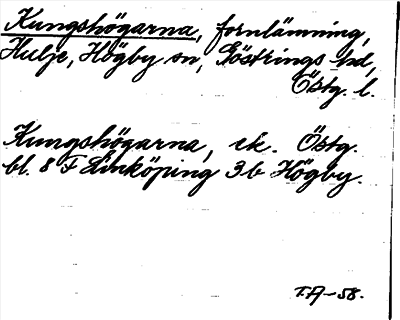 Kungshögarna, fornlämning,
Hulje, Högby sn, Göstrings hd,
Östg. l.
Kungshögarna, ek. Östg.
bl. 8 F Linköping 3b Högby.
T.A-58.